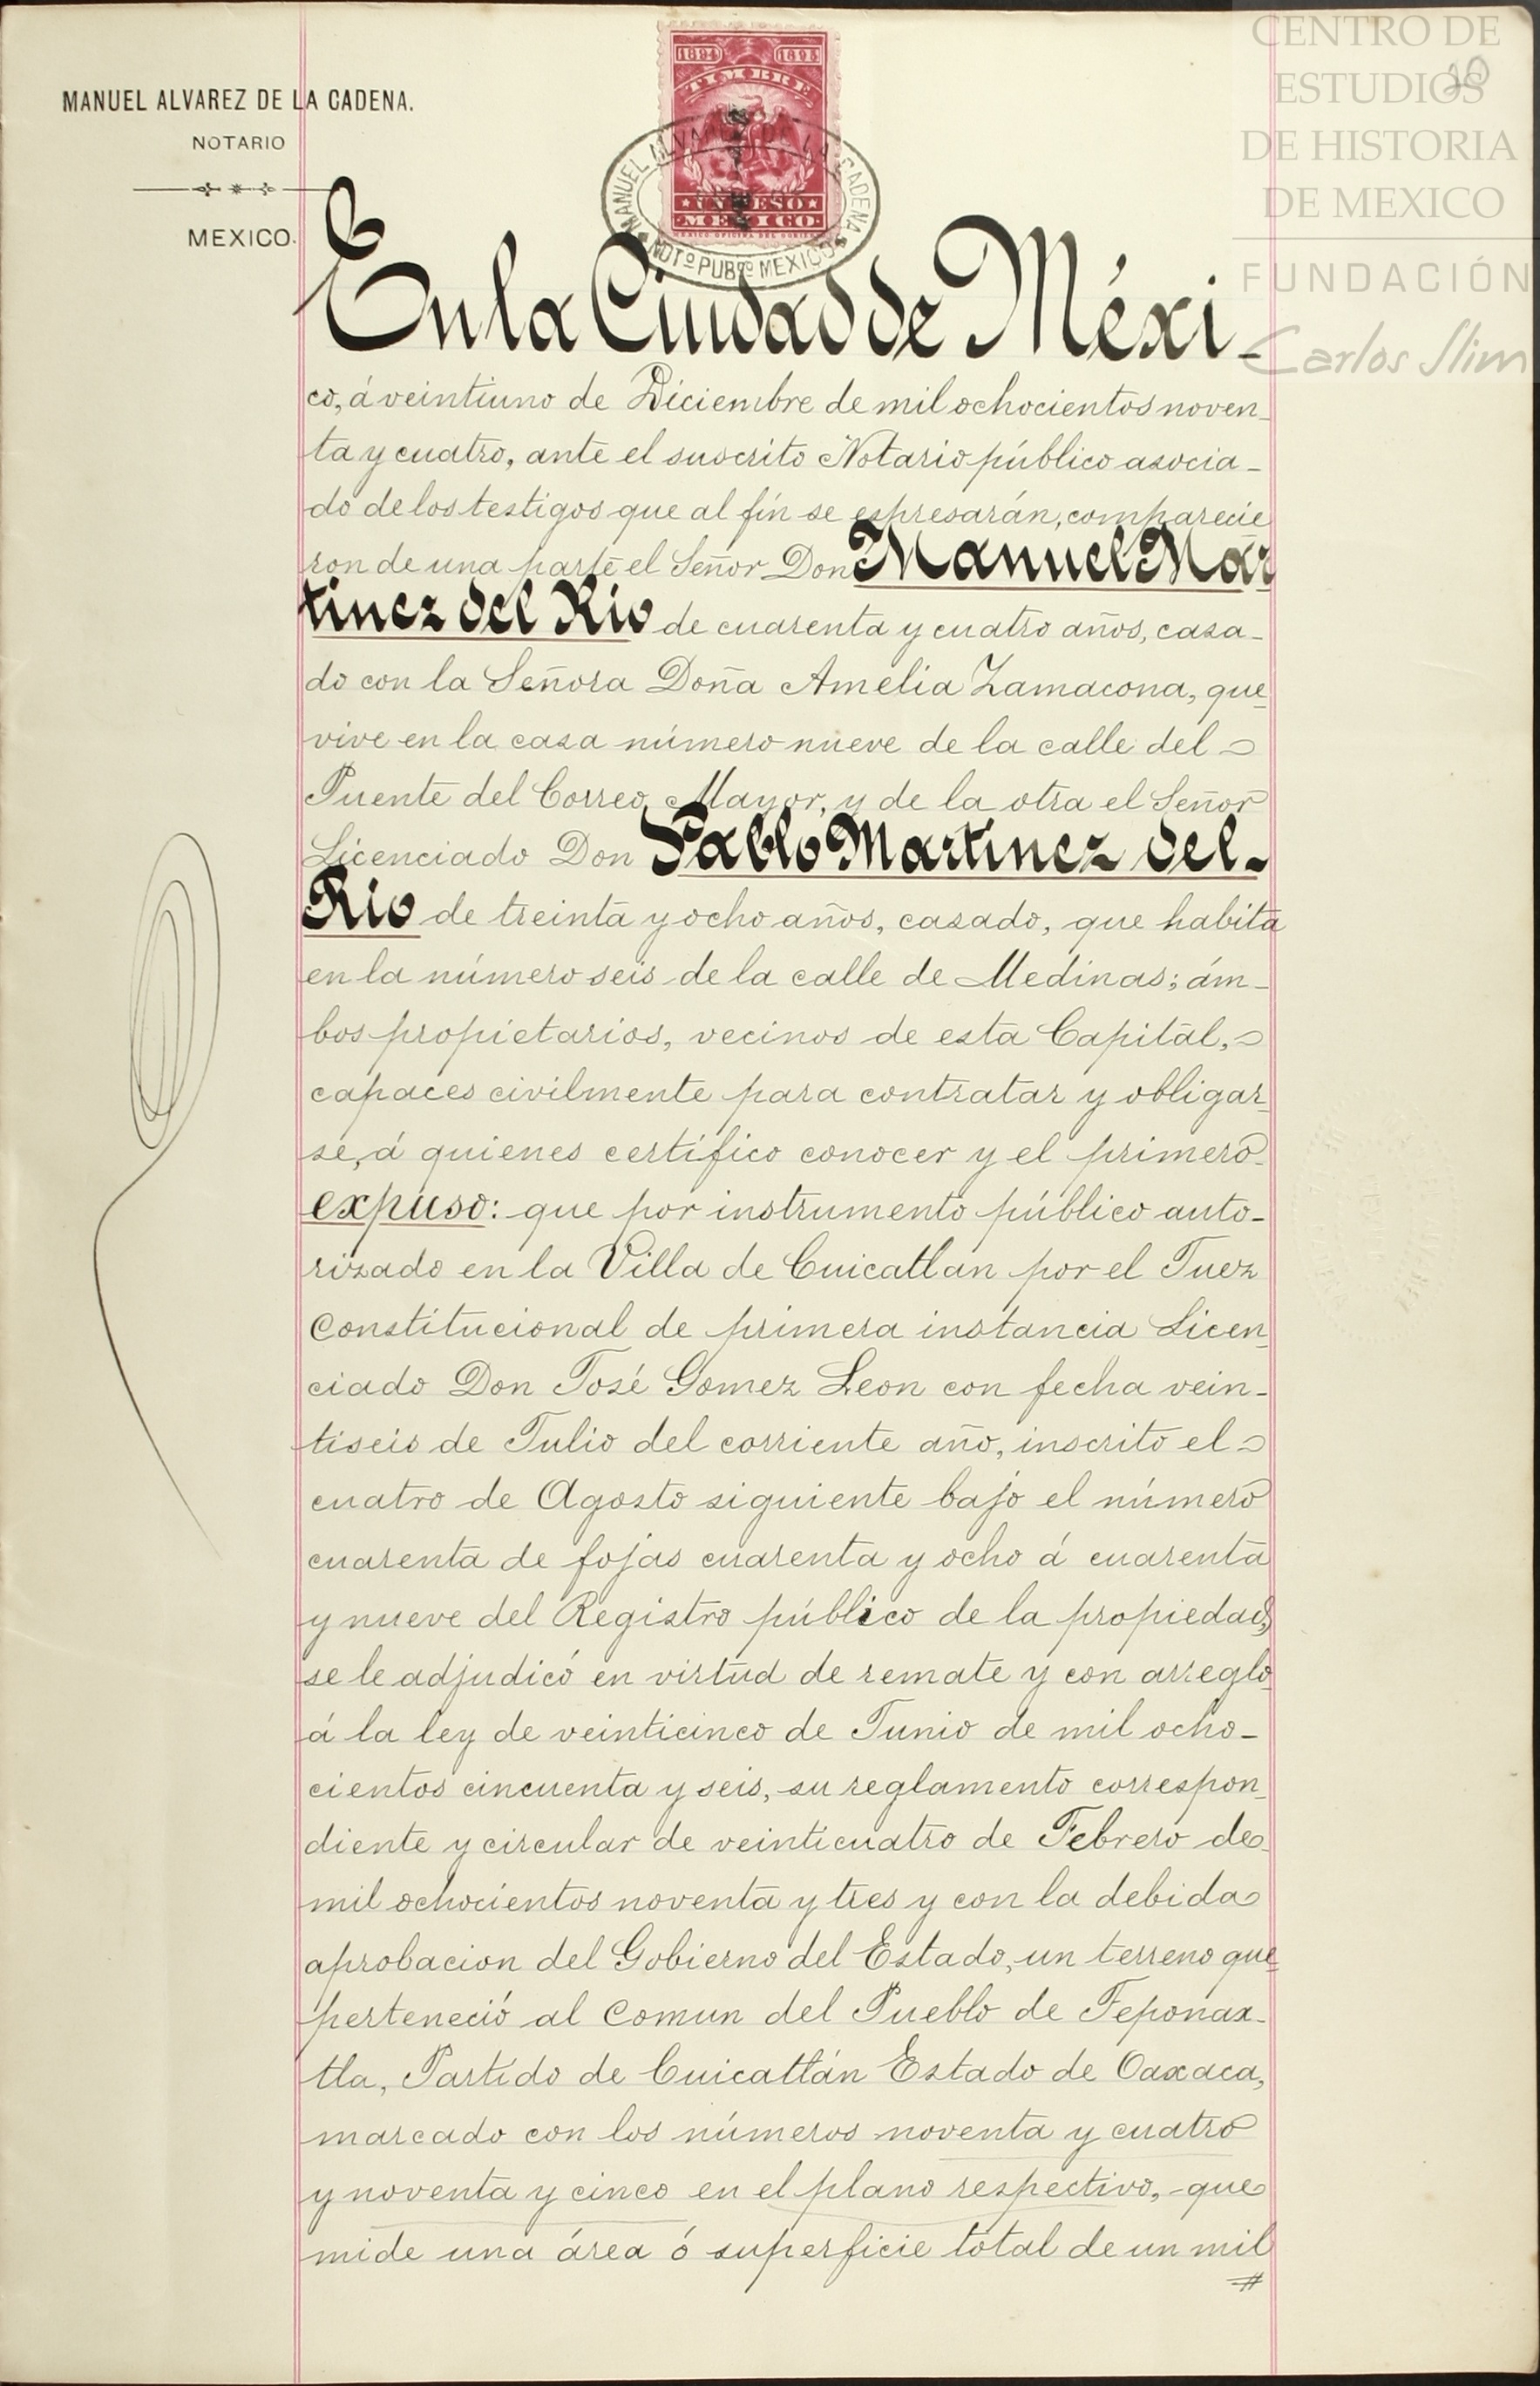 MANUEL ALVAREZ DE LA CADENA.
NOTARIO
MEXICO.
1894 1895
TIMBRE
UN PESO
MEXICO
MANUEL ALVAREZ DE LA CADENA
NOT.º PUB.CO MEXICO
CENTRO DE
ESTUDIOS
DE HISTORIA
DE MEXICO
FUNDACIÓN
Carlos Slim
En la Ciudad de Méxi-
co, á veintiuno de Diciembre de mil ochocientos noven-
ta y cuatro, ante el suscrito Notario público asocia-
do de los testigos que al fín se espresarán, comparecie
ron de una parte el Señor Don Manuel Mar
tinez del Rio de cuarenta y cuatro años, casa-
do con la Señora Doña Amelia Zamacona, que
vive en la casa número nueve de la calle del
Puente del Correo Mayor, y de la otra el Señor
Licenciado Don Pablo Martinez del-
Rio de treinta y ocho años, casado, que habita
en la número seis de la calle de Medinas; ám-
bos propietarios, vecinos de esta Capital,
capaces civilmente para contratar y obligar-
se, á quienes certífico conocer y el primero
expuso: que por instrumento público auto-
rizado en la Villa de Cuicatlan por el Juez
Constitucional de primera instancia Licen-
ciado Don José Gomez Leon con fecha vein-
tiseis de Julio del corriente año, inscrito el
cuatro de Agosto siguiente bajo el número
cuarenta de fojas cuarenta y ocho á cuarenta
y nueve del Registro público de la propiedad,
se le adjudicó en virtud de remate y con arreglo
á la ley de veinticinco de Junio de mil ocho-
cientos cincuenta y seis, su reglamento correspon-
diente y circular de veinticuatro de Febrero de
mil ochocientos noventa y tres y con la debida
aprobacion del Gobierno del Estado, un terreno que
perteneció al Comun del Pueblo de Teponax-
tla, Partido de Cuicatlán Estado de Oaxaca,
marcado con los números noventa y cuatro
y noventa y cinco en el plano respectivo, que
mide una área ó superficie total de un mil